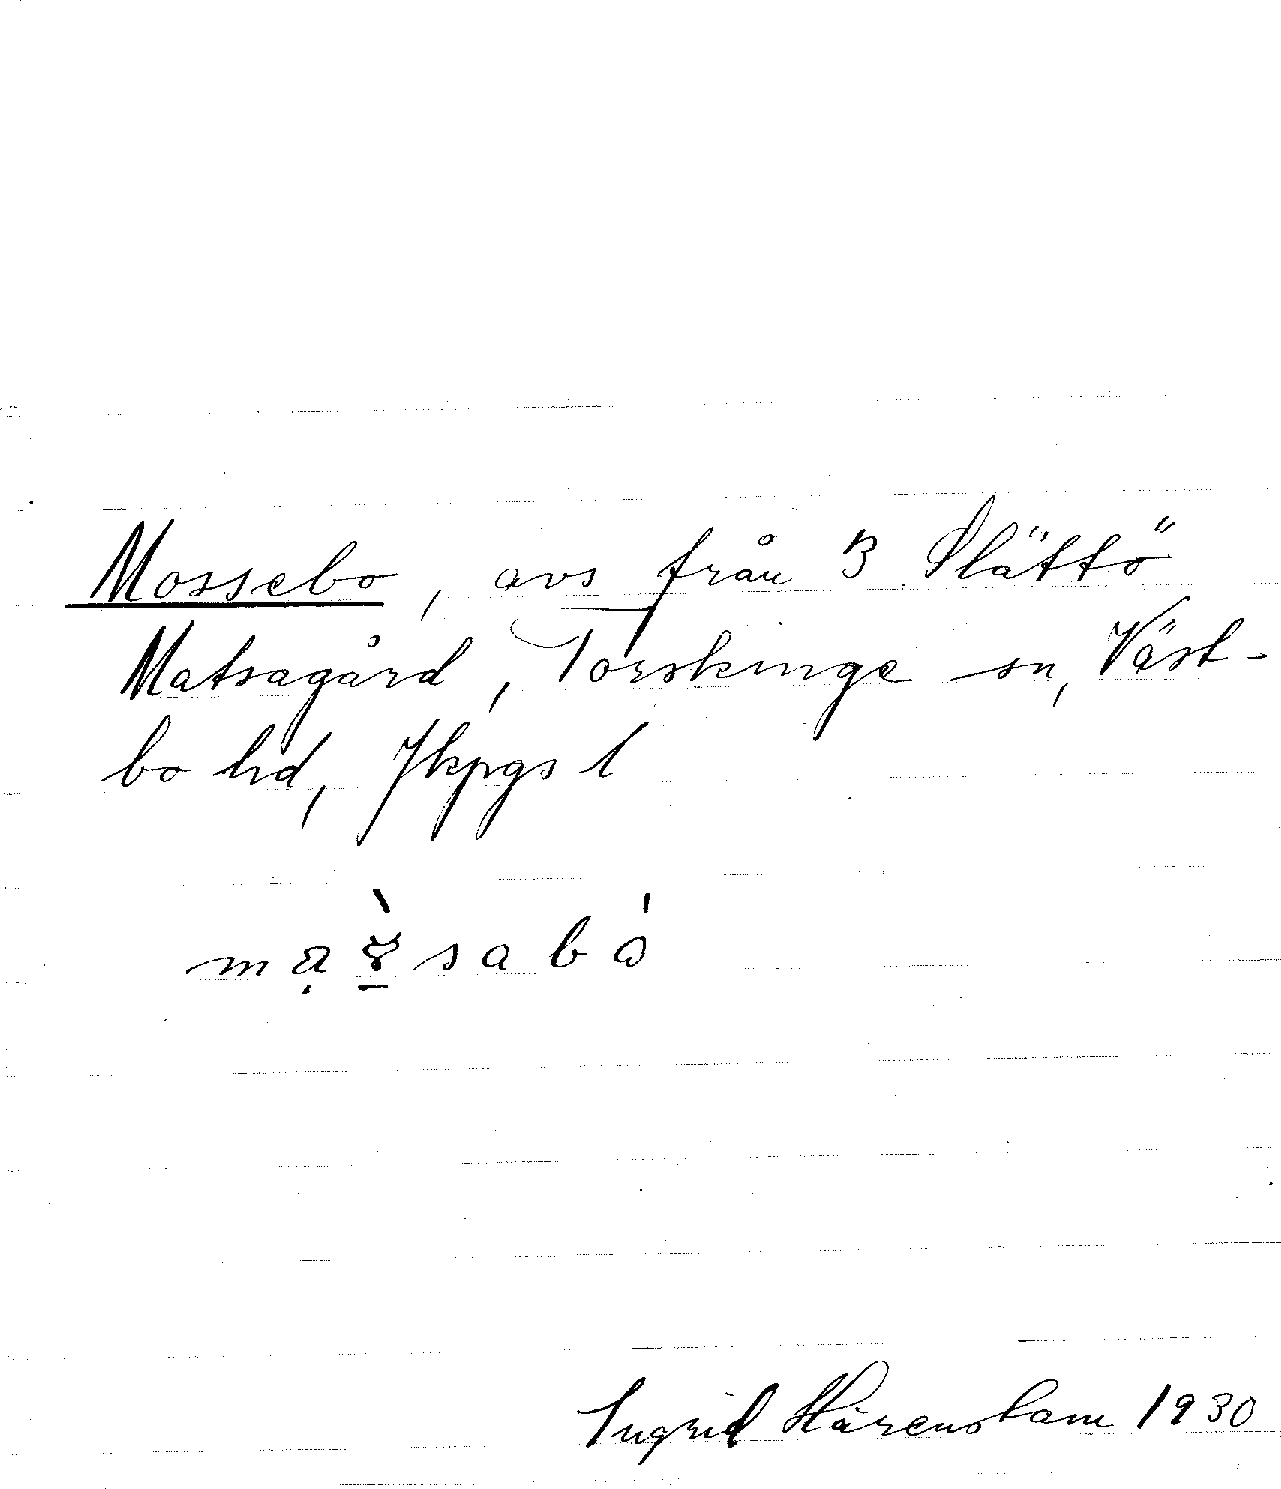 Mossebo, avs från 3 Slättö
Matsagård, Torskinge sn, Väst-
bo hd, Jkpgs l
Ingrid Härenstam 1930